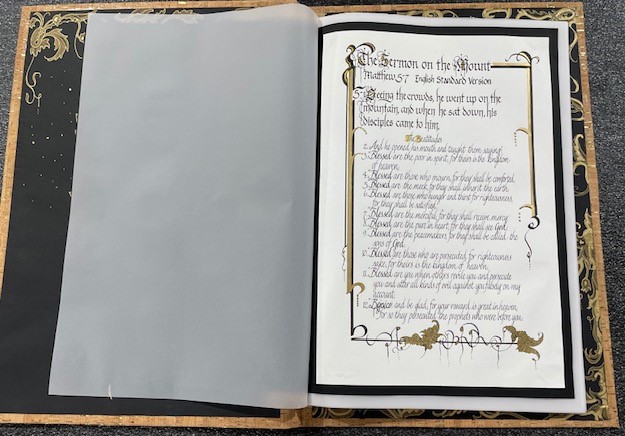 The Sermon on the Mount
Matthew 5-7 English Standard Version
5:1 Seeing the crowds, he went up on the
mountain, and when he sat down, his
disciples came to him.
The Beatitudes
2. And he opened his mouth and taught them, saying:
3. Blessed are the poor in spirit, for theirs is the kingdom
of heaven.
4. Blessed are those who mourn, for they shall be comforted.
5. Blessed are the meek, for they shall inherit the earth.
6. Blessed are those who hunger and thirst for righteousness,
for they shall be satisfied.
7. Blessed are the merciful, for they shall receive mercy.
8. Blessed are the pure in heart, for they shall see God.
9. Blessed are the peacemakers, for they shall be called the
sons of God.
10. Blessed are those who are persecuted for righteousness
sake, for theirs is the kingdom of heaven.
11. Blessed are you when others revile you and persecute
you and utter all kinds of evil against you falsely on my
account.
12. Rejoice and be glad, for your reward is great in heaven,
for so they persecuted the prophets who were before you.